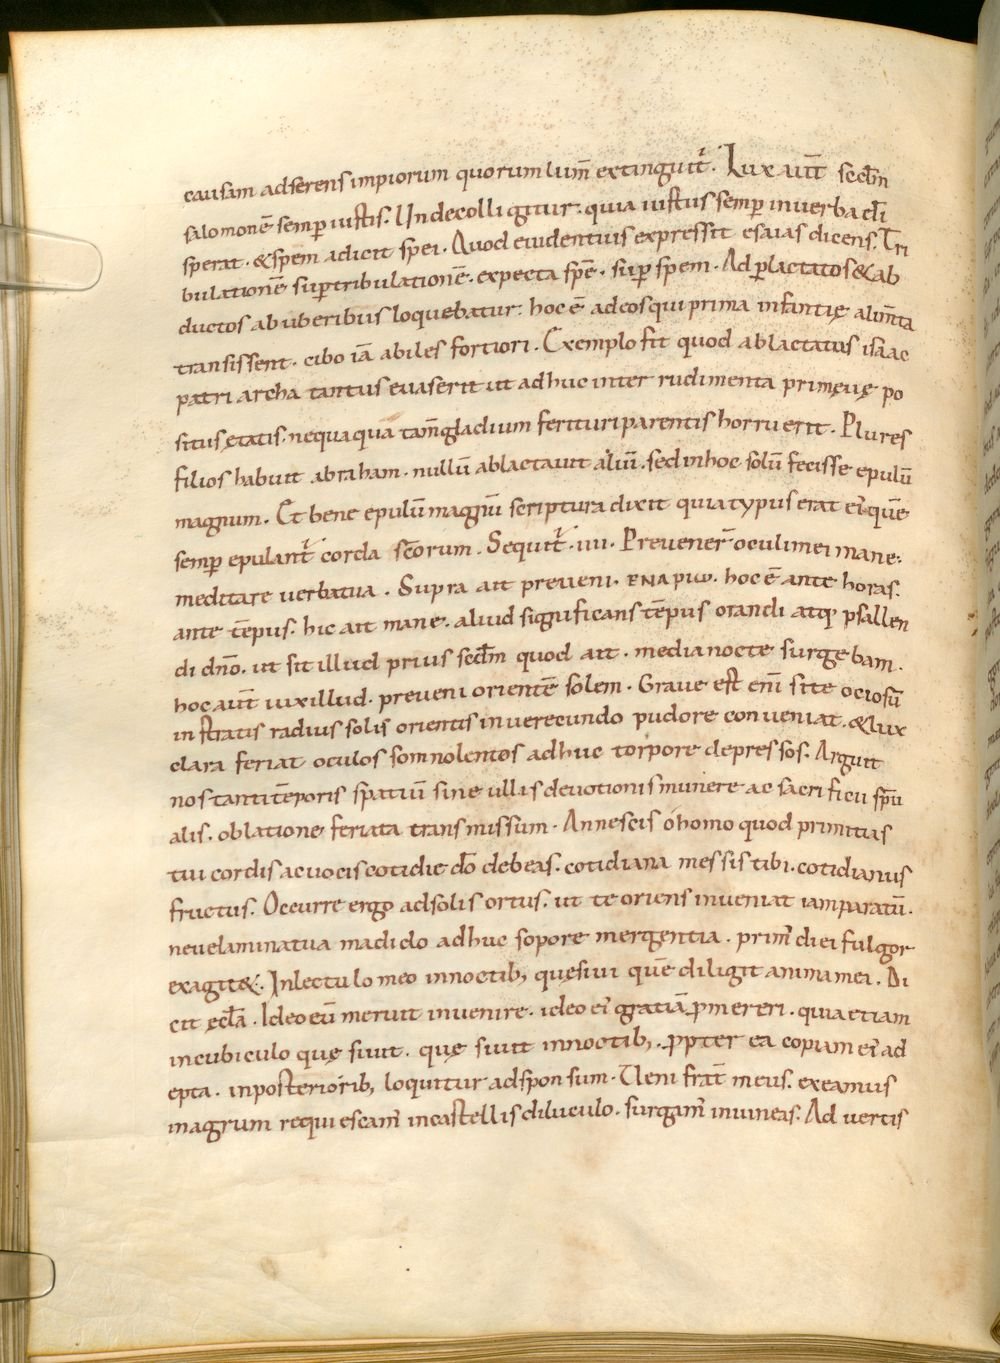 causam adserens impiorum quorum lum̄ extinguit᷒. Lux aut̄ secd̄m
salomonē semp̄ iustis. Unde colligitur. quia iustus semp̄ inuerba dī
sperat. &spem adicit spei. Quod euidentius expressit esaias dicens. Tri
bulationē sup̄tribulationē. expecta spē. sup̄ spem. Ad p̄lactatos &ab
ductos ab uberibus loquebatur. hoc ē adeos qui prima infantię alim̄ta
transissent. cibo iā abiles fortiori. Exemplo fit quod ablactatus isaac
patriarcha tantus euaserit ut adhuc inter rudimenta primęuę po
situs ętatis. nequaquā tam̄ gladium ferituri parentis horruerit. Plures
filios habuit abraham. nullū ablactauit aliū. sed inhoc solū fecisse epulū
magnum. Et bene epulū magnū scriptura dixit quia typus erat ei᷒ quē
semp̄ epulant̄ corda sc̄orum. Sequit̄. iiii. Preuener̄ oculi mei mane.
meditare uerba tua. Supra ait preueni. ΕΝΑΡΙω. hoc ē ante horas.
ante tēpus. hic ait mane. aliud significans tēpus orandi atq; psallen
di dn̄o. ut sit illud prius secd̄m quod ait. media nocte surgebam.
hoc aut̄ iuxillud. preueni orientē solem. Graue est eni᷒ site ociosū
instratis radius solis orientis inuerecundo pudore conueniat. &lux
clara feriat oculos somnolentos adhuc torpore depressos. Arguit
nos tanti tēporis spatiū sine ullis deuotionis munere ac sacrificii sp̄u
alis. oblatione feriata transmissum. Annescis óhomo quod primitias
tui cordis acuocis cotidie dō debeas. cotidiana messis tibi. cotidianus
fructus. Occurre ergo adsolis ortus. ut te oriens inueniat iamparatū.
neuelamina tua madido adhuc sopore mergentia. prim᷒ diei fulgor
exagit&. Inlectulo meo innoctib; quęsiui quē diligit anima mea. Di
cit ęcl̄a. Ideo eū meruit inuenire. ideo ei᷒ gratiā p̄mereri. quia etiam
incubiculo quęsiuit. quęsiuit innoctib;. p̄pter ea copiam ei᷒ ad
epta. inposteriorib; loquitur adsponsum. Ueni frat̄ meus. exeamus
inagrum requiescam᷒ incastellis diluculo. surgam᷒ inuineas. Ad uertis